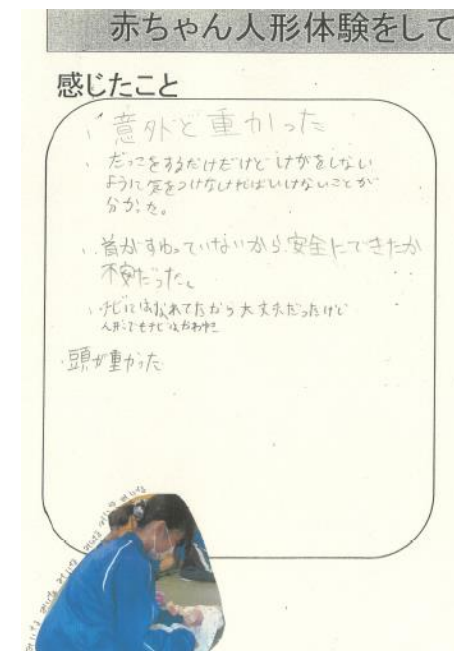 赤ちゃん人形体験をして
感じたこと
、意外と重かった
、だっこをするだけだけど けがをしない
ように気をつけなければいけないことが
分かった。
、首がすわっていないから安全にできたか
不安だった。
、チビにはなれてたから大丈夫だったけど
人形でもチビはかわ
・頭が重かった